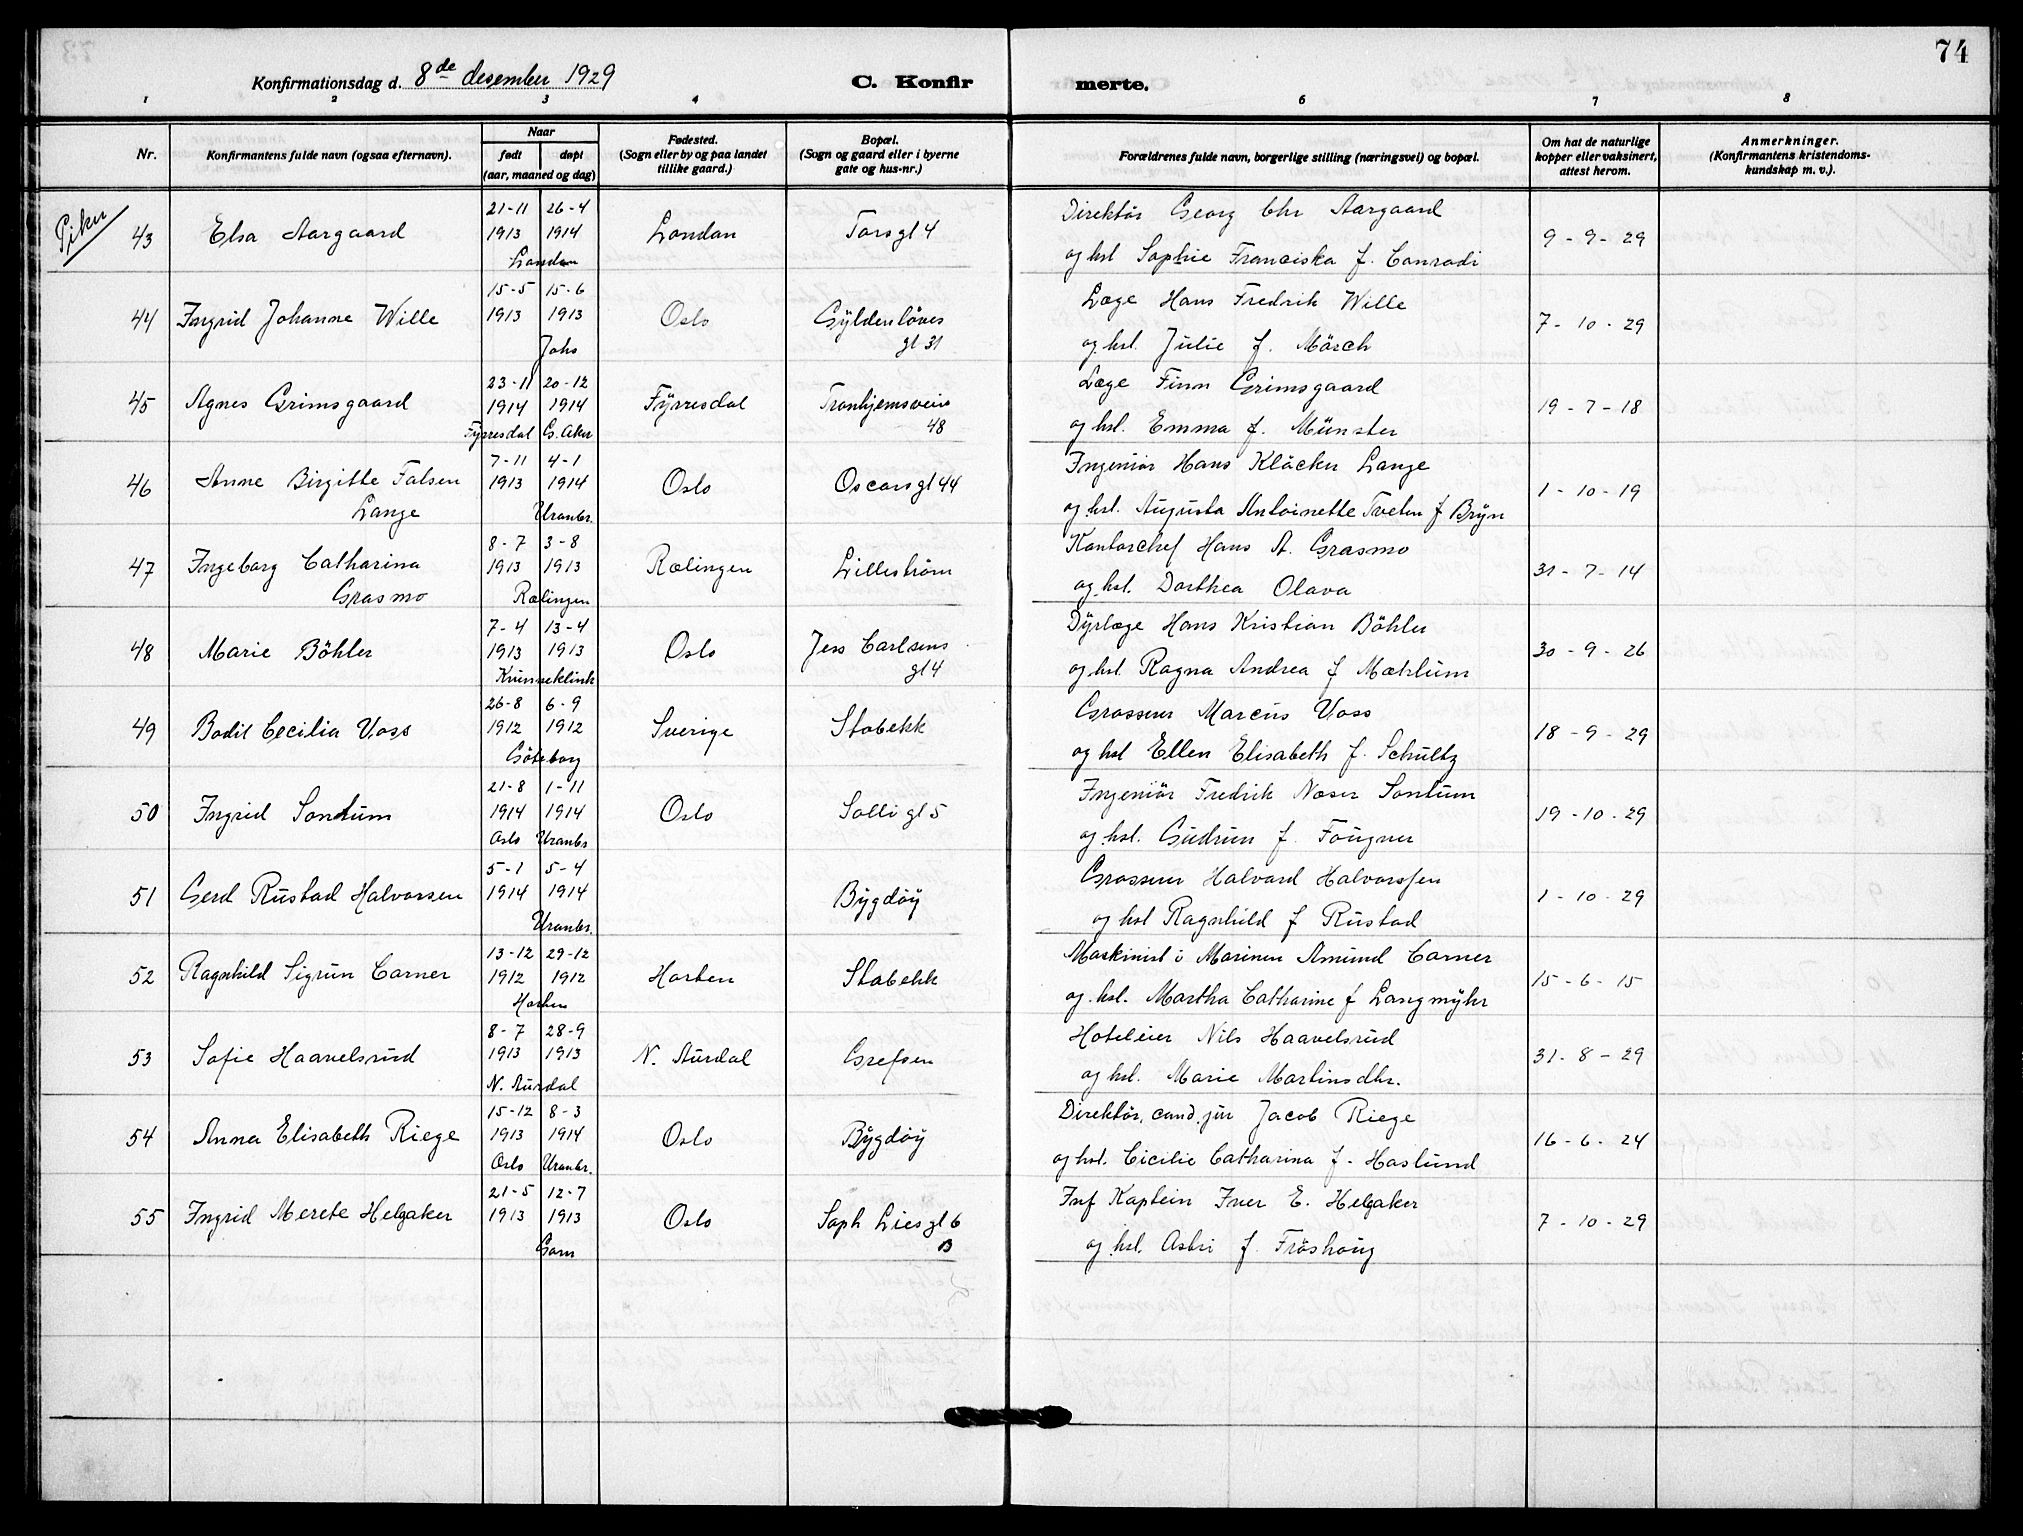 74
Konfirmationsdag d. 8de desember 1929 C. Konfirmerte.
1 2 3 4 6 7 8
Nr.
Konfirmantens fulde navn (ogsaa efternavn).
Naar
født døpt
(aar, maaned og dag)
Fødested.
(Sogn eller by og paa landet
tillike gaard.)
Bopæl.
(Sogn og gaard eller i byerne
gate og hus-nr.)
Forældrenes fulde navn, borgerlige stilling (næringsvei) og bopæl.
Om hat de naturlige
kopper eller vaksinert,
attest herom.
Anmerkninger.
(Konfirmantens kristendoms-
kundskap m. v.).
Piker
21-11 26-4 Direktör Georg Chr Aargaard
43 Elsa Aargaard 1913 1914 London Torsgt 4 9-9-29
London og hst Sophie Franciska f. Conradi
15-5 15-6 Læge Hans Fredrik Wille
44 Ingrid Johanne Wille 1913 1913 Oslo Gyldenlöves 7-10-29
Johs gt 31 og hst. Julie f. Mörch
23-11 20-12 Læge Finn Grimsgaard
45 Agnes Grimsgaard 1914 1914 Fyrresdal Tronhjemsveien 19-7-18
Fyrresdal G. Aker 48 og hst. Emma f. Münster
7-11 4-1 Ingeniör Hans Klöcker Lange
46 Anne Birgitte Falsen 1913 1914 Oslo Oscarsgt 44 1-10-19
Lange Uranbr. og hst. Augusta Antoinette Tveten f Bryn
8-7 3-8 Kontorchef Hans A. Grasmo
47 Ingeborg Catharina 1913 1913 Rælingen Lilleström 31-7-14
Grasmo Rælingen og hst. Dorthea Olava
7-4 13-4 Dyrlæge Hans Kristian Böhler
48 Marie Böhler 1913 1913 Oslo Jess Carlsens 30-9-26
Kvinneklink gt 4 og hst. Ragna Andrea f Mæhlum
26-8 6-9 Grosserer Marcus Voss
49 Bodil Cecilia Voss 1912 1912 Sverige Stabekk 18-9-29
Göteborg og hst Ellen Elisabeth f. Schultz
21-8 1-11 Ingeniör Fredrik Næser Sontum
50 Ingrid Sontum 1914 1914 Oslo Solligt 5 19-10-29
Oslo Uranbr og hst. Gudrun f. Fougner
5-1 5-4 Grosserer Halvard Halvorssen
51 Gerd Rustad Halvorsen 1914 1914 Bygdöy 1-10-29
Uranbr. og hst Ragnhild f Rustad
13-12 29-12 Maskinist i Marinen Amund Corner
52 Ragnhild Sigrun Corner 1912 1912 Horten Stabekk 15-6-15
Horten og hst. Martha Catharine f Langmyhr
8-7 28-9 Hoteleier Nils Haavelsrud
53 Sofie Haavelsrud 1913 1913 N. Aurdal Grefsen 31-8-29
N. Aurdal og hst. Marie Martinsdtr.
15-12 8-3 Direktör, cand. jur Jacob Riege
54 Anna Elisabeth Riege 1913 1914 Oslo Bygdöy 16-6-24
Oslo Uranbr. og hst. Cicilie Catharina f. Haslund
21-5 12-7 Inf Kaptein Iver E. Helgaker
55 Ingrid Merete Helgaker 1913 1913 Oslo Soph Liesgt 6 7-10-29
Garn B og hst. Astri f Fröshoug